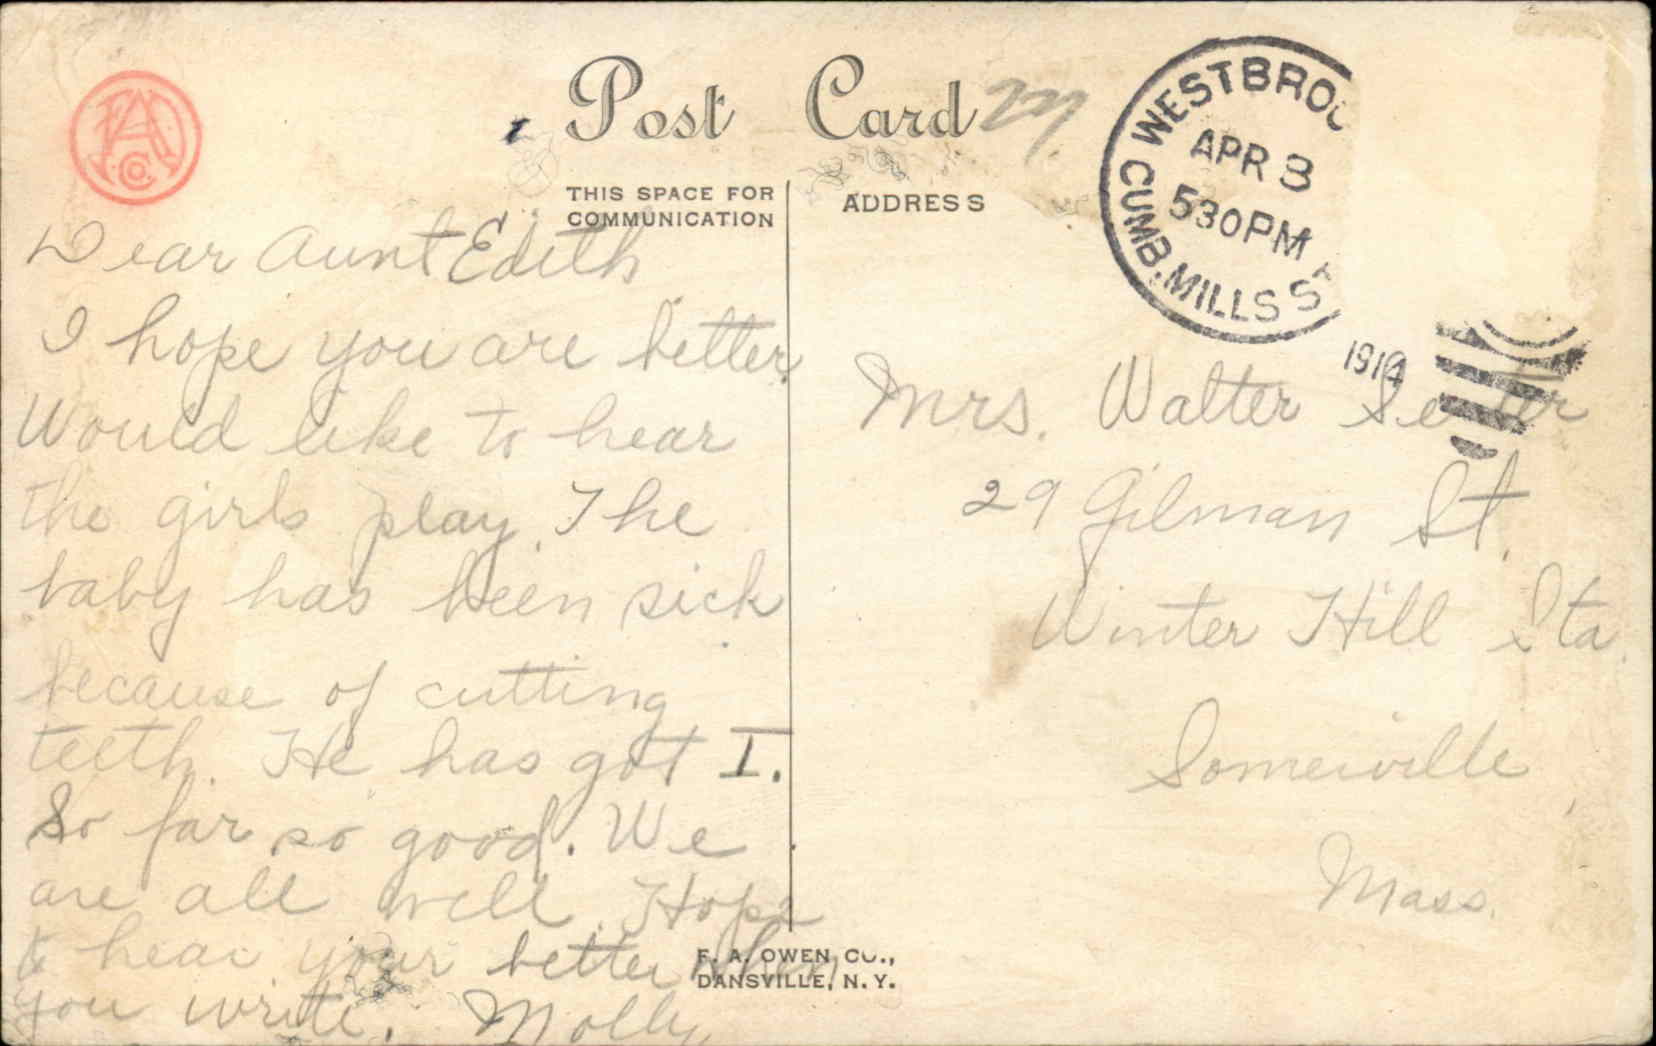 Post Card
THIS SPACE FOR
COMMUNICATION
ADDRESS
WESTBROO
APR 3
530PM
CUMB. MILLS S
1914
Dear Aunt Edith
I hope you are better.
Would like to hear
the girls play. The
baby has been sick
because of cutting
teeth. He has got I.
So far so good. We
are all well. Hope
to hear your better when
you write. Molly
Mrs. Walter
29 Gilman St.
Winter Hill Sta.
Somerville
Mass.
F. A. OWEN CO.,
DANSVILLE, N. Y.